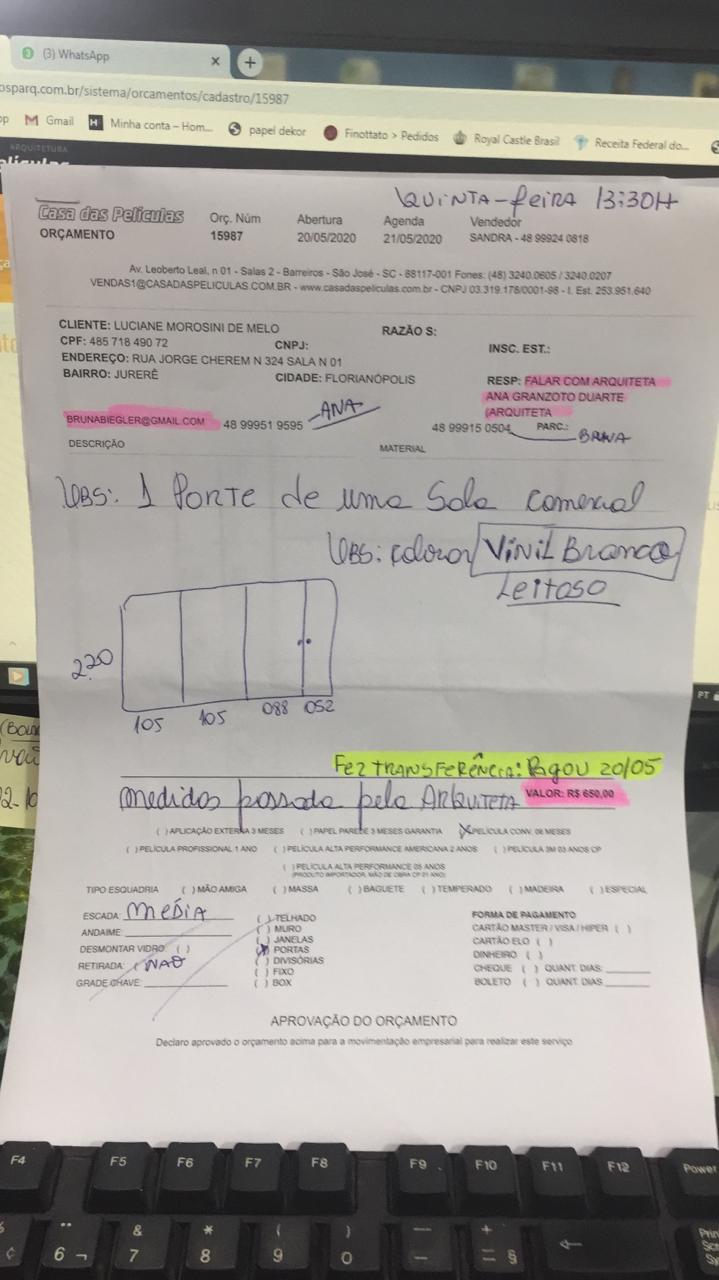 (3) WhatsApp
osparq.com.br/sistema/orcamentos/cadastro/15987
Gmail
Minha conta – Hom...
papel dekor
Finottato > Pedidos
Royal Castle Brasil
Receita Federal do...
ARQUITETURA
QUINTA-feira 13:30H
Casa das Películas
ORÇAMENTO
Orç. Núm
15987
Abertura
20/05/2020
Agenda
21/05/2020
Vendedor
SANDRA - 48 99924 0818
Av. Leoberto Leal, n 01 - Salas 2 - Barreiros - São José - SC - 88117-001 Fones: (48) 3240.0605 / 3240.0207
VENDAS1@CASADASPELICULAS.COM.BR - www.casadaspeliculas.com.br - CNPJ 03.319.178/0001-98 - I. Est. 253.951.640
CLIENTE: LUCIANE MOROSINI DE MELO
RAZÃO S:
CPF: 485 718 490 72
CNPJ:
INSC. EST.:
ENDEREÇO: RUA JORGE CHEREM N 324 SALA N 01
BAIRRO: JURERÊ
CIDADE: FLORIANÓPOLIS
RESP: FALAR COM ARQUITETA
ANA GRANZOTO DUARTE
(ARQUITETA
BRUNABIEGLER@GMAIL.COM
48 99951 9595
ANA
48 99915 0504
PARC.:
BRUNA
DESCRIÇÃO
MATERIAL
OBS: 1 Porte de uma Sala comercial
OBS: colocar Vinil Branco
Leitoso
2.20
105 105 088 052
Fez TRANSFERÊNCIA: Pagou 20/05
medidos passada pela ARQUITETA
VALOR: R$ 650,00
( ) APLICAÇÃO EXTERNA 3 MESES ( ) PAPEL PAREDE 3 MESES GARANTIA (X) PELÍCULA CONV. 06 MESES
( ) PELÍCULA PROFISSIONAL 1 ANO ( ) PELÍCULA ALTA PERFORMANCE AMERICANA 2 ANOS ( ) PELÍCULA 3M 03 ANOS CP
( ) PELÍCULA ALTA PERFORMANCE 05 ANOS
(PRODUTO IMPORTADOR, MÃO DE OBRA CP 01 ANO)
TIPO ESQUADRIA ( ) MÃO AMIGA ( ) MASSA ( ) BAGUETE ( ) TEMPERADO ( ) MADEIRA ( ) ESPECIAL
ESCADA: MEDIA
ANDAIME:
DESMONTAR VIDRO: ( )
RETIRADA: ( NAO
GRADE CHAVE:
( ) TELHADO
( ) MURO
( ) JANELAS
(X) PORTAS
( ) DIVISÓRIAS
( ) FIXO
( ) BOX
FORMA DE PAGAMENTO
CARTÃO MASTER / VISA / HIPER ( )
CARTÃO ELO ( )
DINHEIRO ( )
CHEQUE ( ) QUANT. DIAS:
BOLETO ( ) QUANT. DIAS
APROVAÇÃO DO ORÇAMENTO
Declaro aprovado o orçamento acima para a movimentação empresarial para realizar este serviço
PT
F4 F5 F6 F7 F8 F9 F10 F11 F12 Power
¢ 6 ¬ & 7 * 8 ( 9 ) 0 — + = §